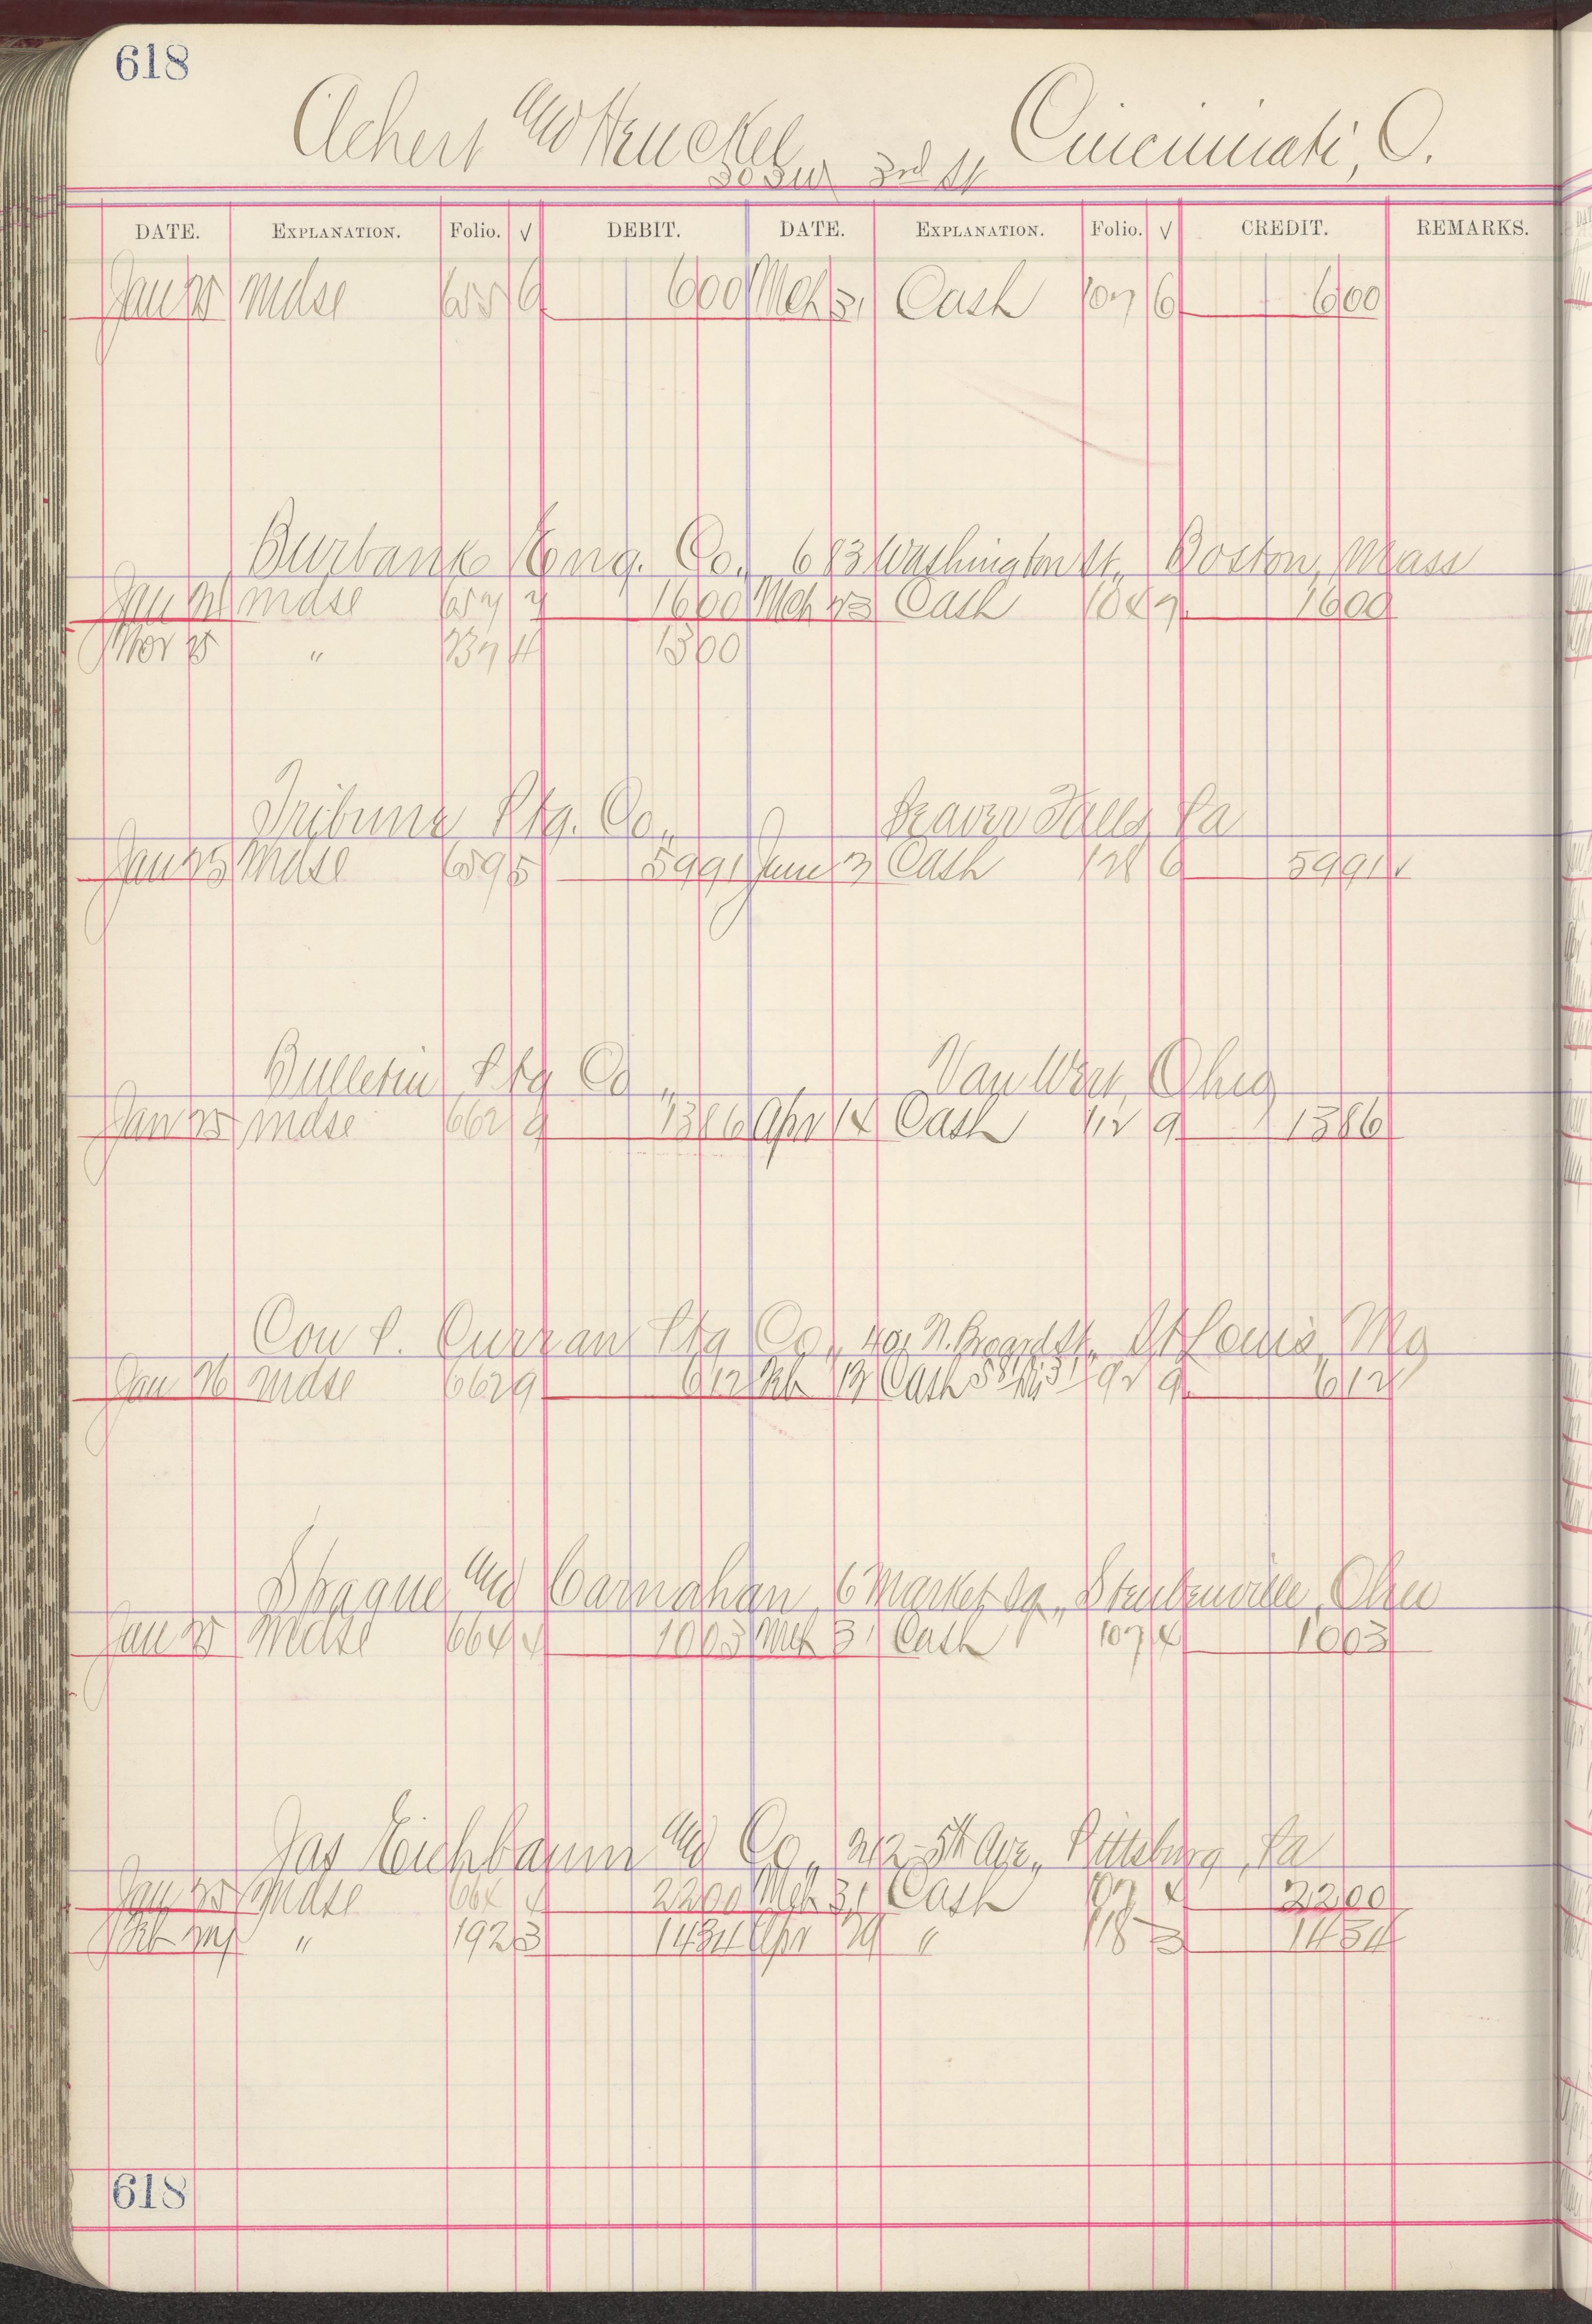 618
Achert and Henckel Cincinnati, O.
3rd St
DATE. EXPLANATION. Folio. √ DEBIT. DATE. EXPLANATION. Folio. √ CREDIT. REMARKS.
Jan 25 Mdse 655 6 600 Mch 31 Cash 107 6 600
Burbank Eng. Co., 683 Washington St. Boston, Mass
Jan mdse 657 7 1600 Mch 23 Cash 104 7 1600
Nov 25 " 237 4 1500
Tribune Ptg. Co., Beaver Falls, Pa
Jan 25 Mdse 659 5 5991 June 3 Cash 128 6 5991
Bulletin Ptg Co., Van Wert, Ohio
Jan 25 mdse 662 9 1386 Apr 14 Cash 112 9 1386
Con P. Curran Ptg Co., N. Broad St. St Louis, Mo
Jan 26 mdse 662 9 612 Feb 13 Cash 92 9 612
Sprague and Carnahan, 6 Market Sq., Steubenville, Ohio
Jan 25 Mdse 664 4 1003 Mch 31 Cash 107 4 1003
Jas Eichbaum and Co., 242-5th Ave., Pittsburg, Pa
Jan 25 Mdse 664 4 2200 Mch 31 Cash 107 4 2200
Feb " 192 3 1434 Apr 29 " 118 3 1434
618